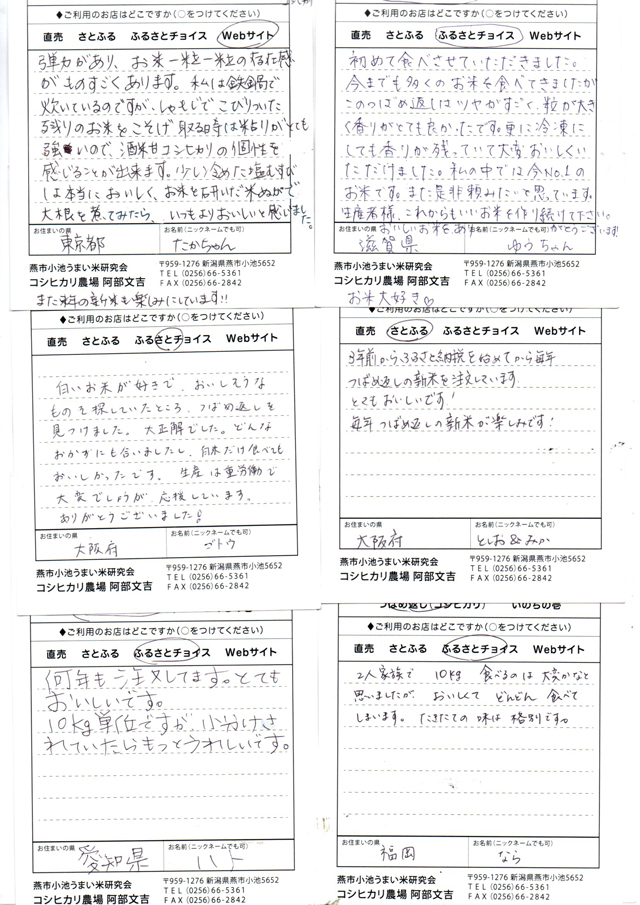 ◆ご利用のお店はどこですか(○をつけてください)
直売 さとふる ふるさとチョイス Webサイト
弾力があり、お米一粒一粒の存在感
がものすごくあります。私は鉄鍋で
炊いているのですが、しゃもじでこびりついた
残りのお米をこそげ取る時は粘りがとても
強いので、酒米甘コシヒカリの個性を
感じることが出来ます。少し冷めた塩むすび
は本当においしく、お米を研いだ米ぬかで
大根を煮てみたら、いつもよりおいしいと感じました。
お住まいの県 お名前(ニックネームでも可)
東京都 たかちゃん
燕市小池うまい米研究会 〒959-1276 新潟県燕市小池5652
コシヒカリ農場 阿部文吉 TEL (0256)66-5361
FAX (0256)66-2842
また来年の新米も楽しみにしています!!
◆ご利用のお店はどこですか(○をつけてください)
直売 さとふる ふるさとチョイス Webサイト
初めて食べさせていただきました。
今までも多くのお米を食べてきましたが
このつばめ返しはツヤがすごく、粒が大き
く香りがとても良かったです。更に冷凍に
しても香りが残っていて大変おいしくい
ただけました。私の中では今No.1の
お米です。また是非頼みたいと思っています。
生産者様、これからもいいお米を作り続けて下さい。
おいしいお米をありがとうございます!
お住まいの県 お名前(ニックネームでも可)
滋賀県 ゆうちゃん
燕市小池うまい米研究会 〒959-1276 新潟県燕市小池5652
コシヒカリ農場 阿部文吉 TEL (0256)66-5361
FAX (0256)66-2842
お米大好き♡
◆ご利用のお店はどこですか(○をつけてください)
直売 さとふる ふるさとチョイス Webサイト
白いお米が好きで、おいしそうな
ものを探していたところ、つばめ返しを
見つけました。大正解でした。どんな
おかずにも合いましたし、白米だけ食べても
おいしかったです。生産は重労働で
大変でしょうが、応援しています。
ありがとうございました!
お住まいの県 お名前(ニックネームでも可)
大阪府 ゴトウ
燕市小池うまい米研究会 〒959-1276 新潟県燕市小池5652
コシヒカリ農場 阿部文吉 TEL (0256)66-5361
FAX (0256)66-2842
◆ご利用のお店はどこですか(○をつけてください)
直売 さとふる ふるさとチョイス Webサイト
3年前からふるさと納税を始めてから毎年
つばめ返しの新米を注文しています
とてもおいしいです!
毎年つばめ返しの新米が楽しみです!
お住まいの県 お名前(ニックネームでも可)
大阪府 としお&みか
燕市小池うまい米研究会 〒959-1276 新潟県燕市小池5652
コシヒカリ農場 阿部文吉 TEL (0256)66-5361
FAX (0256)66-2842
◆ご利用のお店はどこですか(○をつけてください)
直売 さとふる ふるさとチョイス Webサイト
何年も注文してます。とても
おいしいです。
10kg単位ですが、小分けさ
れていたらもっとうれしいです。
お住まいの県 お名前(ニックネームでも可)
愛知県 ハト
燕市小池うまい米研究会 〒959-1276 新潟県燕市小池5652
コシヒカリ農場 阿部文吉 TEL (0256)66-5361
FAX (0256)66-2842
つばめ返し(コシヒカリ) いのちの壱
◆ご利用のお店はどこですか(○をつけてください)
直売 さとふる ふるさとチョイス Webサイト
2人家族で 10kg 食べるのは大変かなと
思いましたが おいしくて どんどん 食べて
しまいます。たきたての 味は 格別です。
お住まいの県 お名前(ニックネームでも可)
福岡 なら
燕市小池うまい米研究会 〒959-1276 新潟県燕市小池5652
コシヒカリ農場 阿部文吉 TEL (0256)66-5361
FAX (0256)66-2842